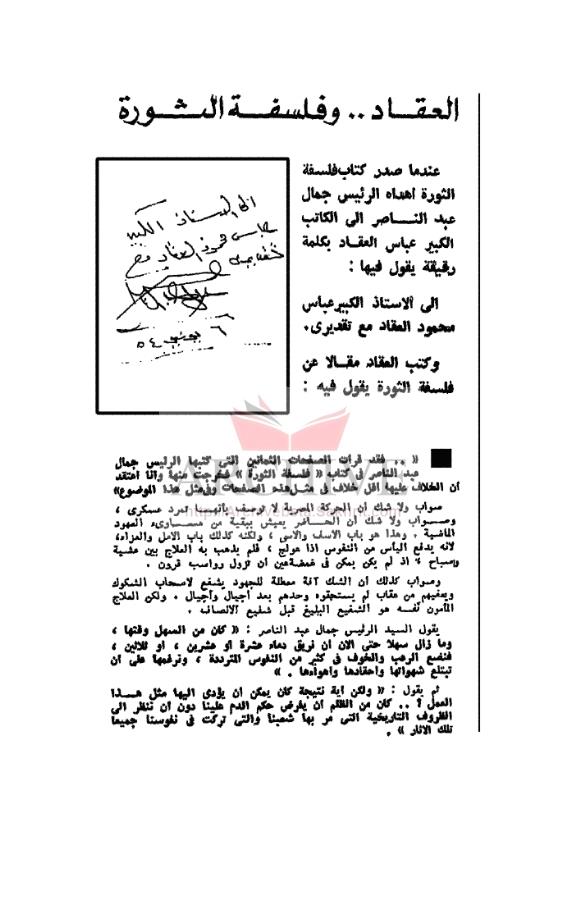 العقاد .. وفلسفة الثورة
عندما صدر كتاب فلسفة
الثورة اهداه الرئيس جمال
عبد الناصر الى الكاتب
الكبير عباس العقاد بكلمة
رقيقة يقول فيها :
الى الاستاذ الكبير عباس
محمود العقاد مع تقديرى .
وكتب العقاد مقالا عن
فلسفة الثورة يقول فيه :
الى الاستاذ الكبير
عباس محمود العقاد مع
٦ يونيو ٥٤
« .. فقد قرات الصفحات الثمانين التى كتبها الرئيس جمال
عبد الناصر فى كتاب « فلسفة الثورة » فخرجت منها وأنا اعتقد
أن الخلاف عليها أقل خلاف فى مثل هذه الصفحات وفى مثل هذا الموضوع»
صواب ولا شك أن الحركة المصرية لا توصف بأنهسا تمرد عسكرى ،
وصواب ولا شك أن الحاضر يعيش ببقية من مساوىء العهود
الماضية . وهذا هو باب الأسف والأسى ، ولكنه كذلك باب الأمل والعزاء،
لانه يدفع اليأس من النفوس اذا عولج ، فلم يذهب به العلاج بين عشية
وصباح ، اذ لم يكن يمكن فى غمضة عين أن تزول رواسب قرون .
وصواب كذلك أن الشك آفة معطلة للجهود يشفع لاصحاب الشكوك
ويعفيهم من عقاب لم يستحقوه وحدهم بعد أجيال وأجيال . ولكن العلاج
المأمون نفسه هو الشفيع البليغ قبل شفيع الانصاف .
يقول السيد الرئيس جمال عبد الناصر : « كان من السهل وقتها ،
وما زال سهلا حتى الان أن نريق دماء عشرة أو عشرين ، أو ثلاثين ،
فنضع الرعب والخوف فى كثير من النفوس المترددة ، ونرغمها على أن
تبتلع شهواتها واحقادها واهواءها . »
ثم يقول : « ولكن أية نتيجة كان يمكن أن يؤدى اليها مثل هسذا
العمل ؟ .. كان من الظلم أن يفرض حكم الدم علينا دون أن ننظر الى
الظروف التاريخية التى مر بها شعبنا والتى تركت فى نفوسنا جميعا
تلك الاثار » .
ARCHIVE